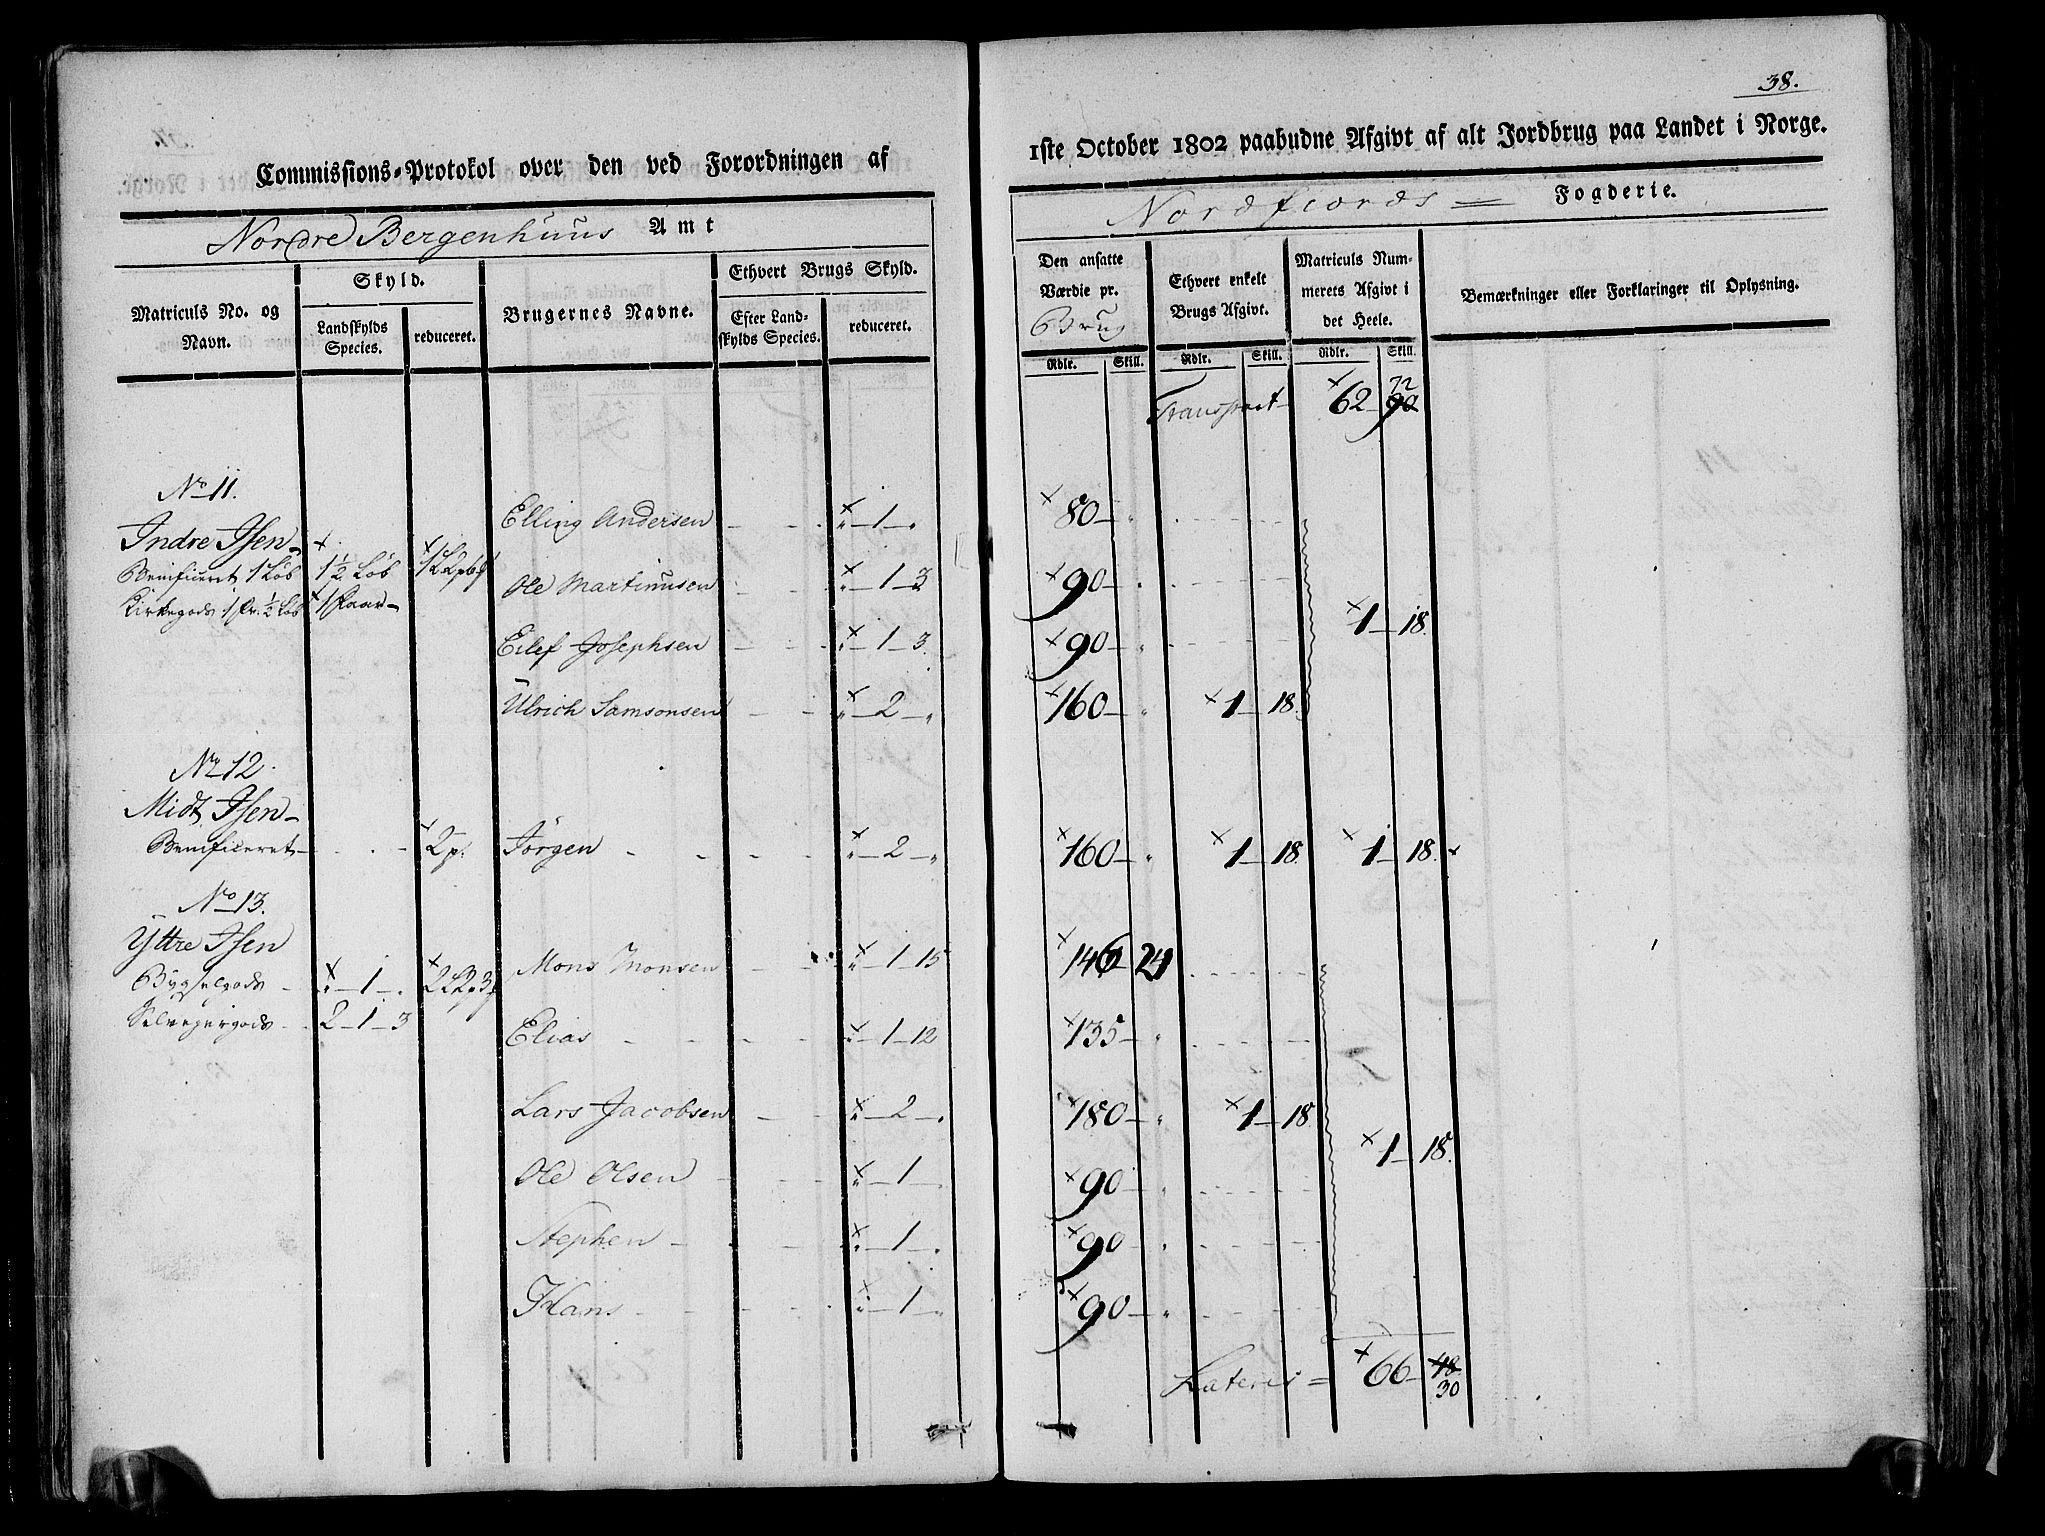 38.
Commissions-Protokol over den ved Forordningen af 1ste October 1802 paabudne Afgivt af alt Jordbrug paa Landet i Norge.
Nordre Bergenhuus Amt
Nordfiords Fogderie.
Matriculs No. og Navn.
Skyld.
Landskylds Species.
reduceret.
Brugernes Navne.
Ethvert Brugs Skyld.
Efter Landskylds Species.
reduceret.
Den ansatte Værdie pr. Brug
Rdlr. Skill.
Ethvert enkelt Brugs Afgivt.
Rdlr. Skill.
Matriculs Nummerets Afgivt i det Heele.
Rdlr. Skill.
Bemærkninger eller Forklaringer til Oplysning.
Transport 62 90 72
No 11.
Indre Isen
Benificeret 1 Løb 1½ Løb
Kirkegods 1 pr. ½ Løb 1 faar
Elling Andersen 1 80
Ole Martinusen 1 3 90
Eilef Josephsen 1 3 90
1 18.
Ulrich Samsonsen 2 160 1 18.
No 12.
Midt Isen
Benificeret 2 p. Jörgen 2 160 1 18 1 18.
No 13.
Yttre Isen
Bygselgods 1
Selvejergods 2 1 3
Mons Monsen 1 15 146 24
Elias 1 12 135
Lars Jacobsen 2 180 1 18
1 18.
Ole Olsen 1 90
Stephen 1 90
Hans 1 90
Lateris = 66 48 30